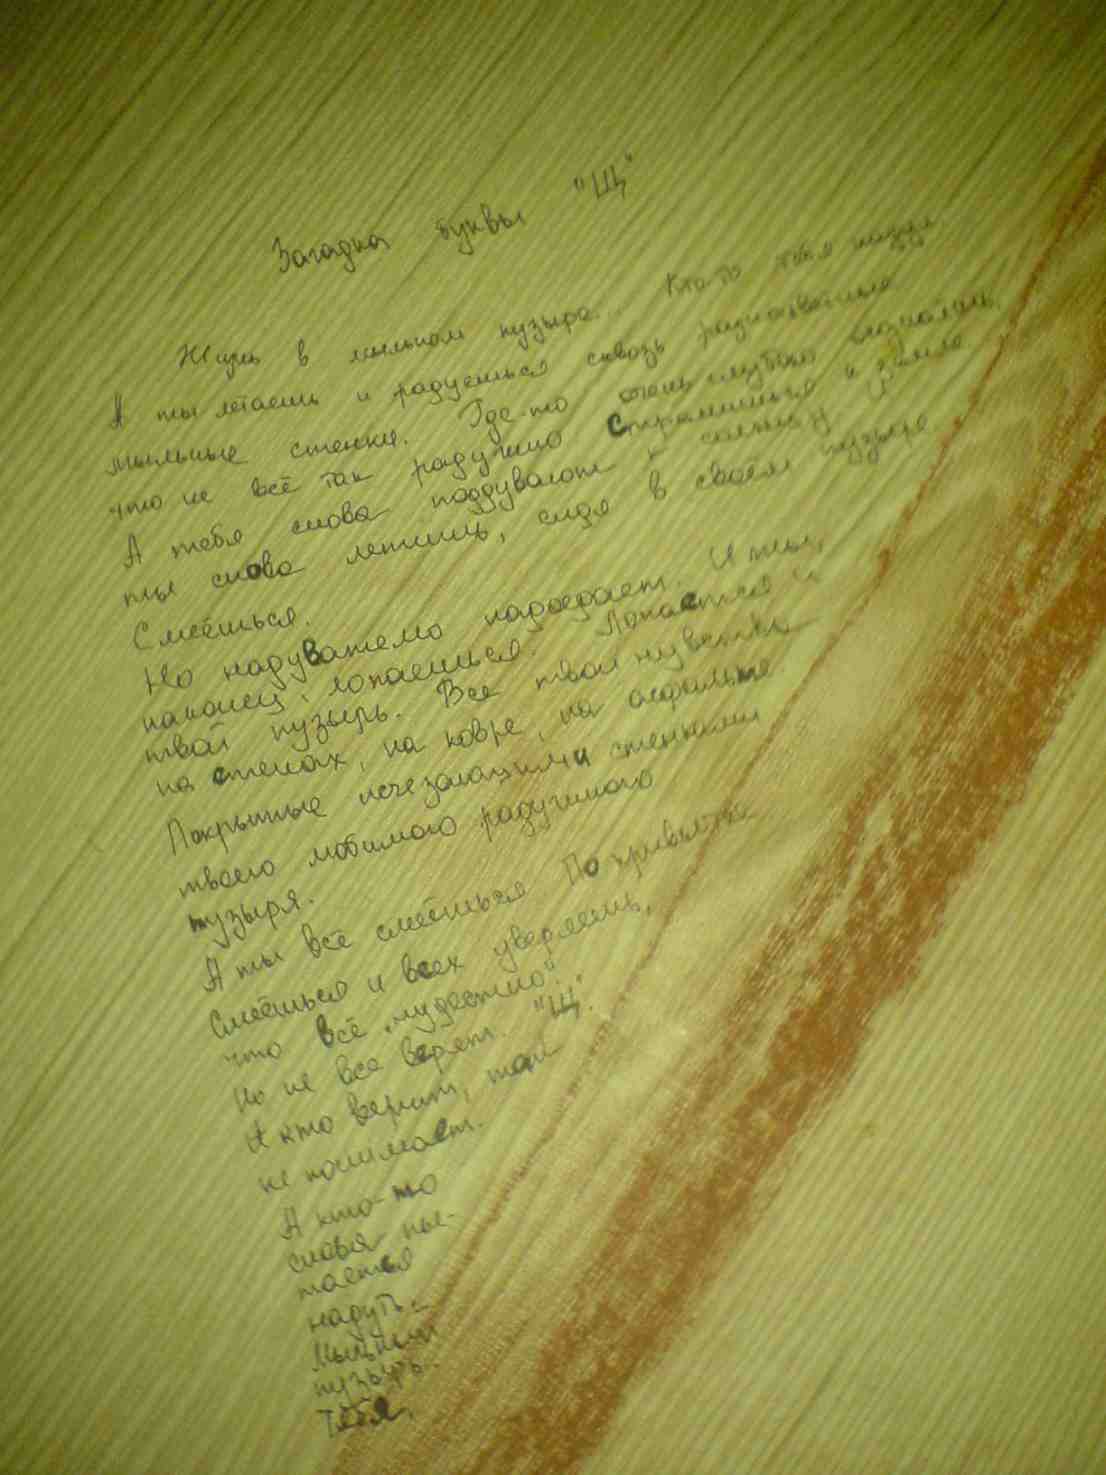 Загадка буквы "Щ"
Жизнь в мыльном пузыре. Кто-то тебя
А ты летаешь и радуешься сквозь разноцветные
мыльные стенки. Где-то очень глубоко
что не всё так радужно Стремишься к земле
А тебя снова поддувают к солнцу И
ты снова летишь, сидя в своём пузыре
Смеёшься.
Но надуватемо надоедает. И ты,
наконец, лопаешься. Лопается и
твой пузырь. Все твои чувства
на стенах, на ковре, на асфальте
Покрытые исчезающими стенками
твоего любимого радужного
пузыря.
А ты всё смеёшься По привычке
Смеёшься и всех уверяешь,
что всё "чудестно".
Но не все верят. "Щ".
А кто верит, тот
не понимает.
А кто-то
снова пы-
тается
надуть
Мыльный
пузырь.
Тебя.